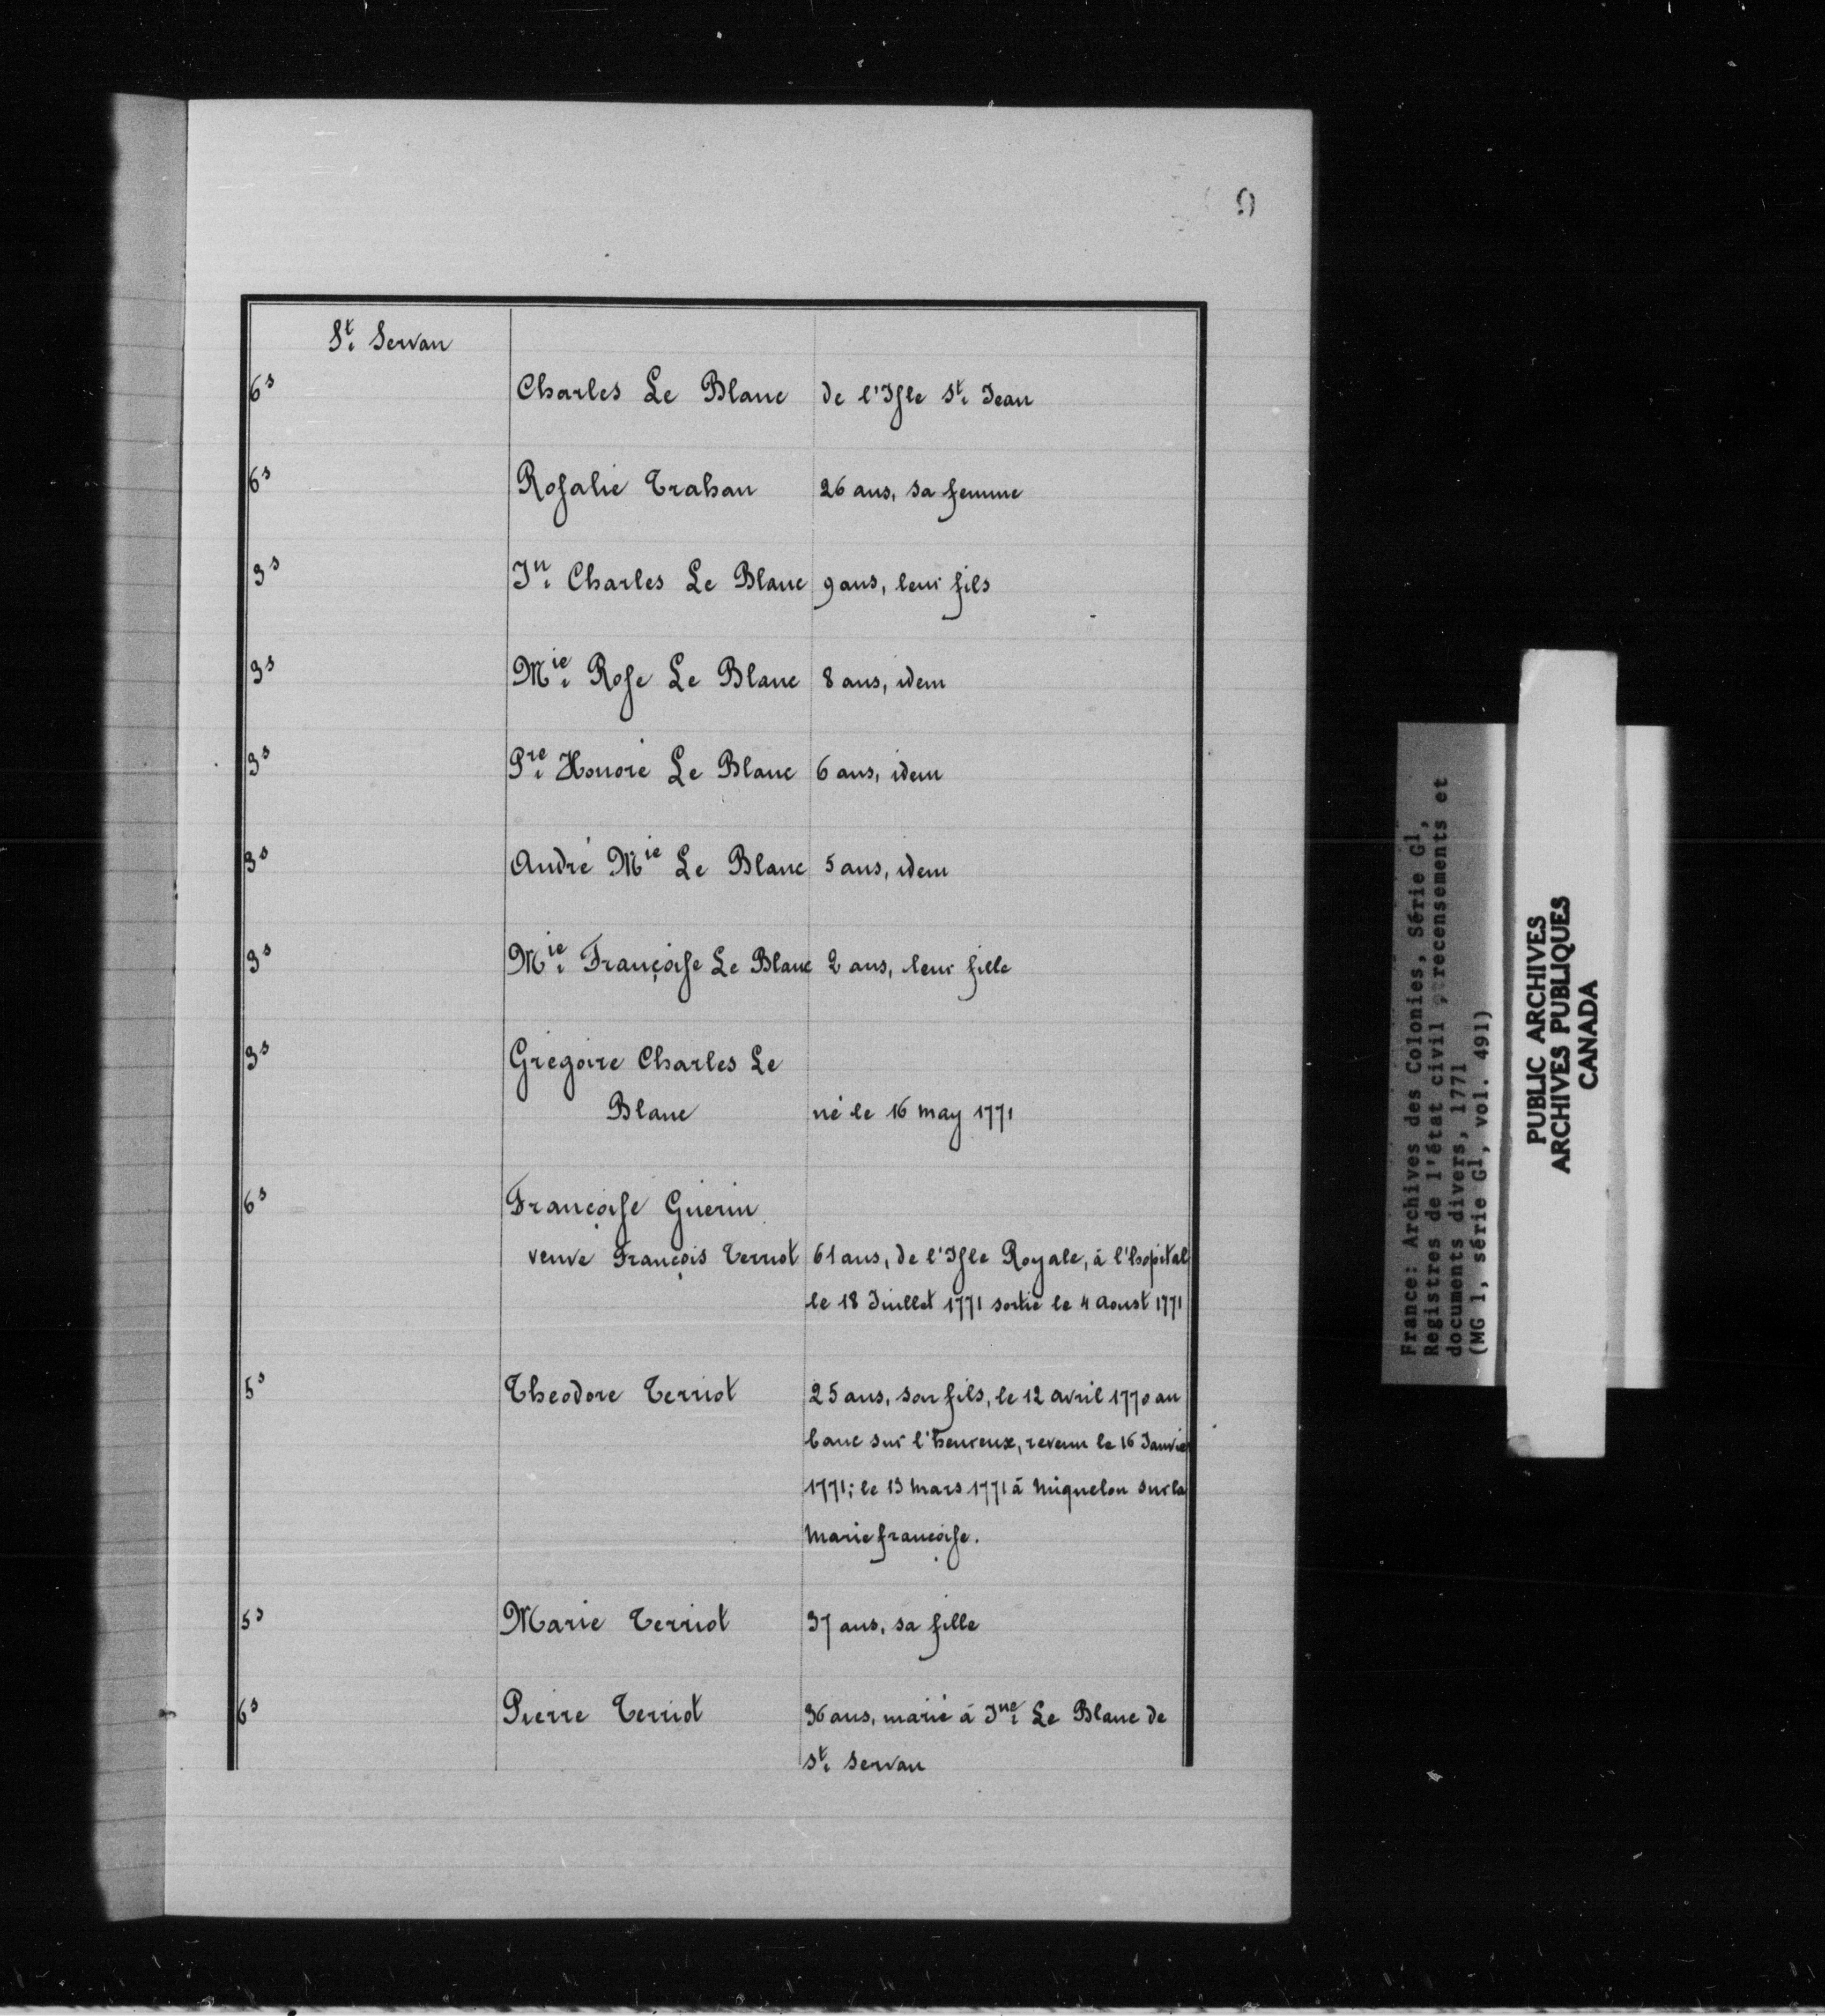 St. Servan
6s Charles Le Blanc de l'Isle St. Jean
6s Rosalie Trahan 26 ans, sa femme
3s Jn. Charles Le Blanc 9 ans, leur fils
3s Mie. Rose Le Blanc 8 ans, idem
3s Pre. Honoré Le Blanc 6 ans, idem
3s André Mie Le Blanc 5 ans, idem
3s Mie. Françoise Le Blanc 2 ans, leur fille
3s Gregoire Charles Le
Blanc né le 16 may 1771
6s Françoise Guerin
veuve François Terriot 61 ans, de l'Isle Royale, à l'hopital
le 18 Juillet 1771 sortie le 4 Aoust 1771
5s Theodore Terriot 25 ans, son fils, le 12 avril 1770 au
banc sur l'heureux, revenu le 16 Janvier
1771; le 13 mars 1771 à Miquelon sur la
Marie françoise.
5s Marie Terriot 37 ans, sa fille
6s Pierre Terriot 36 ans, marié à Jne. Le Blanc de
St. Servan
France: Archives des Colonies, Série G1,
Registres de l'état civil, recensements et
documents divers, 1771
(MG 1, série G1, vol. 491)
PUBLIC ARCHIVES
ARCHIVES PUBLIQUES
CANADA